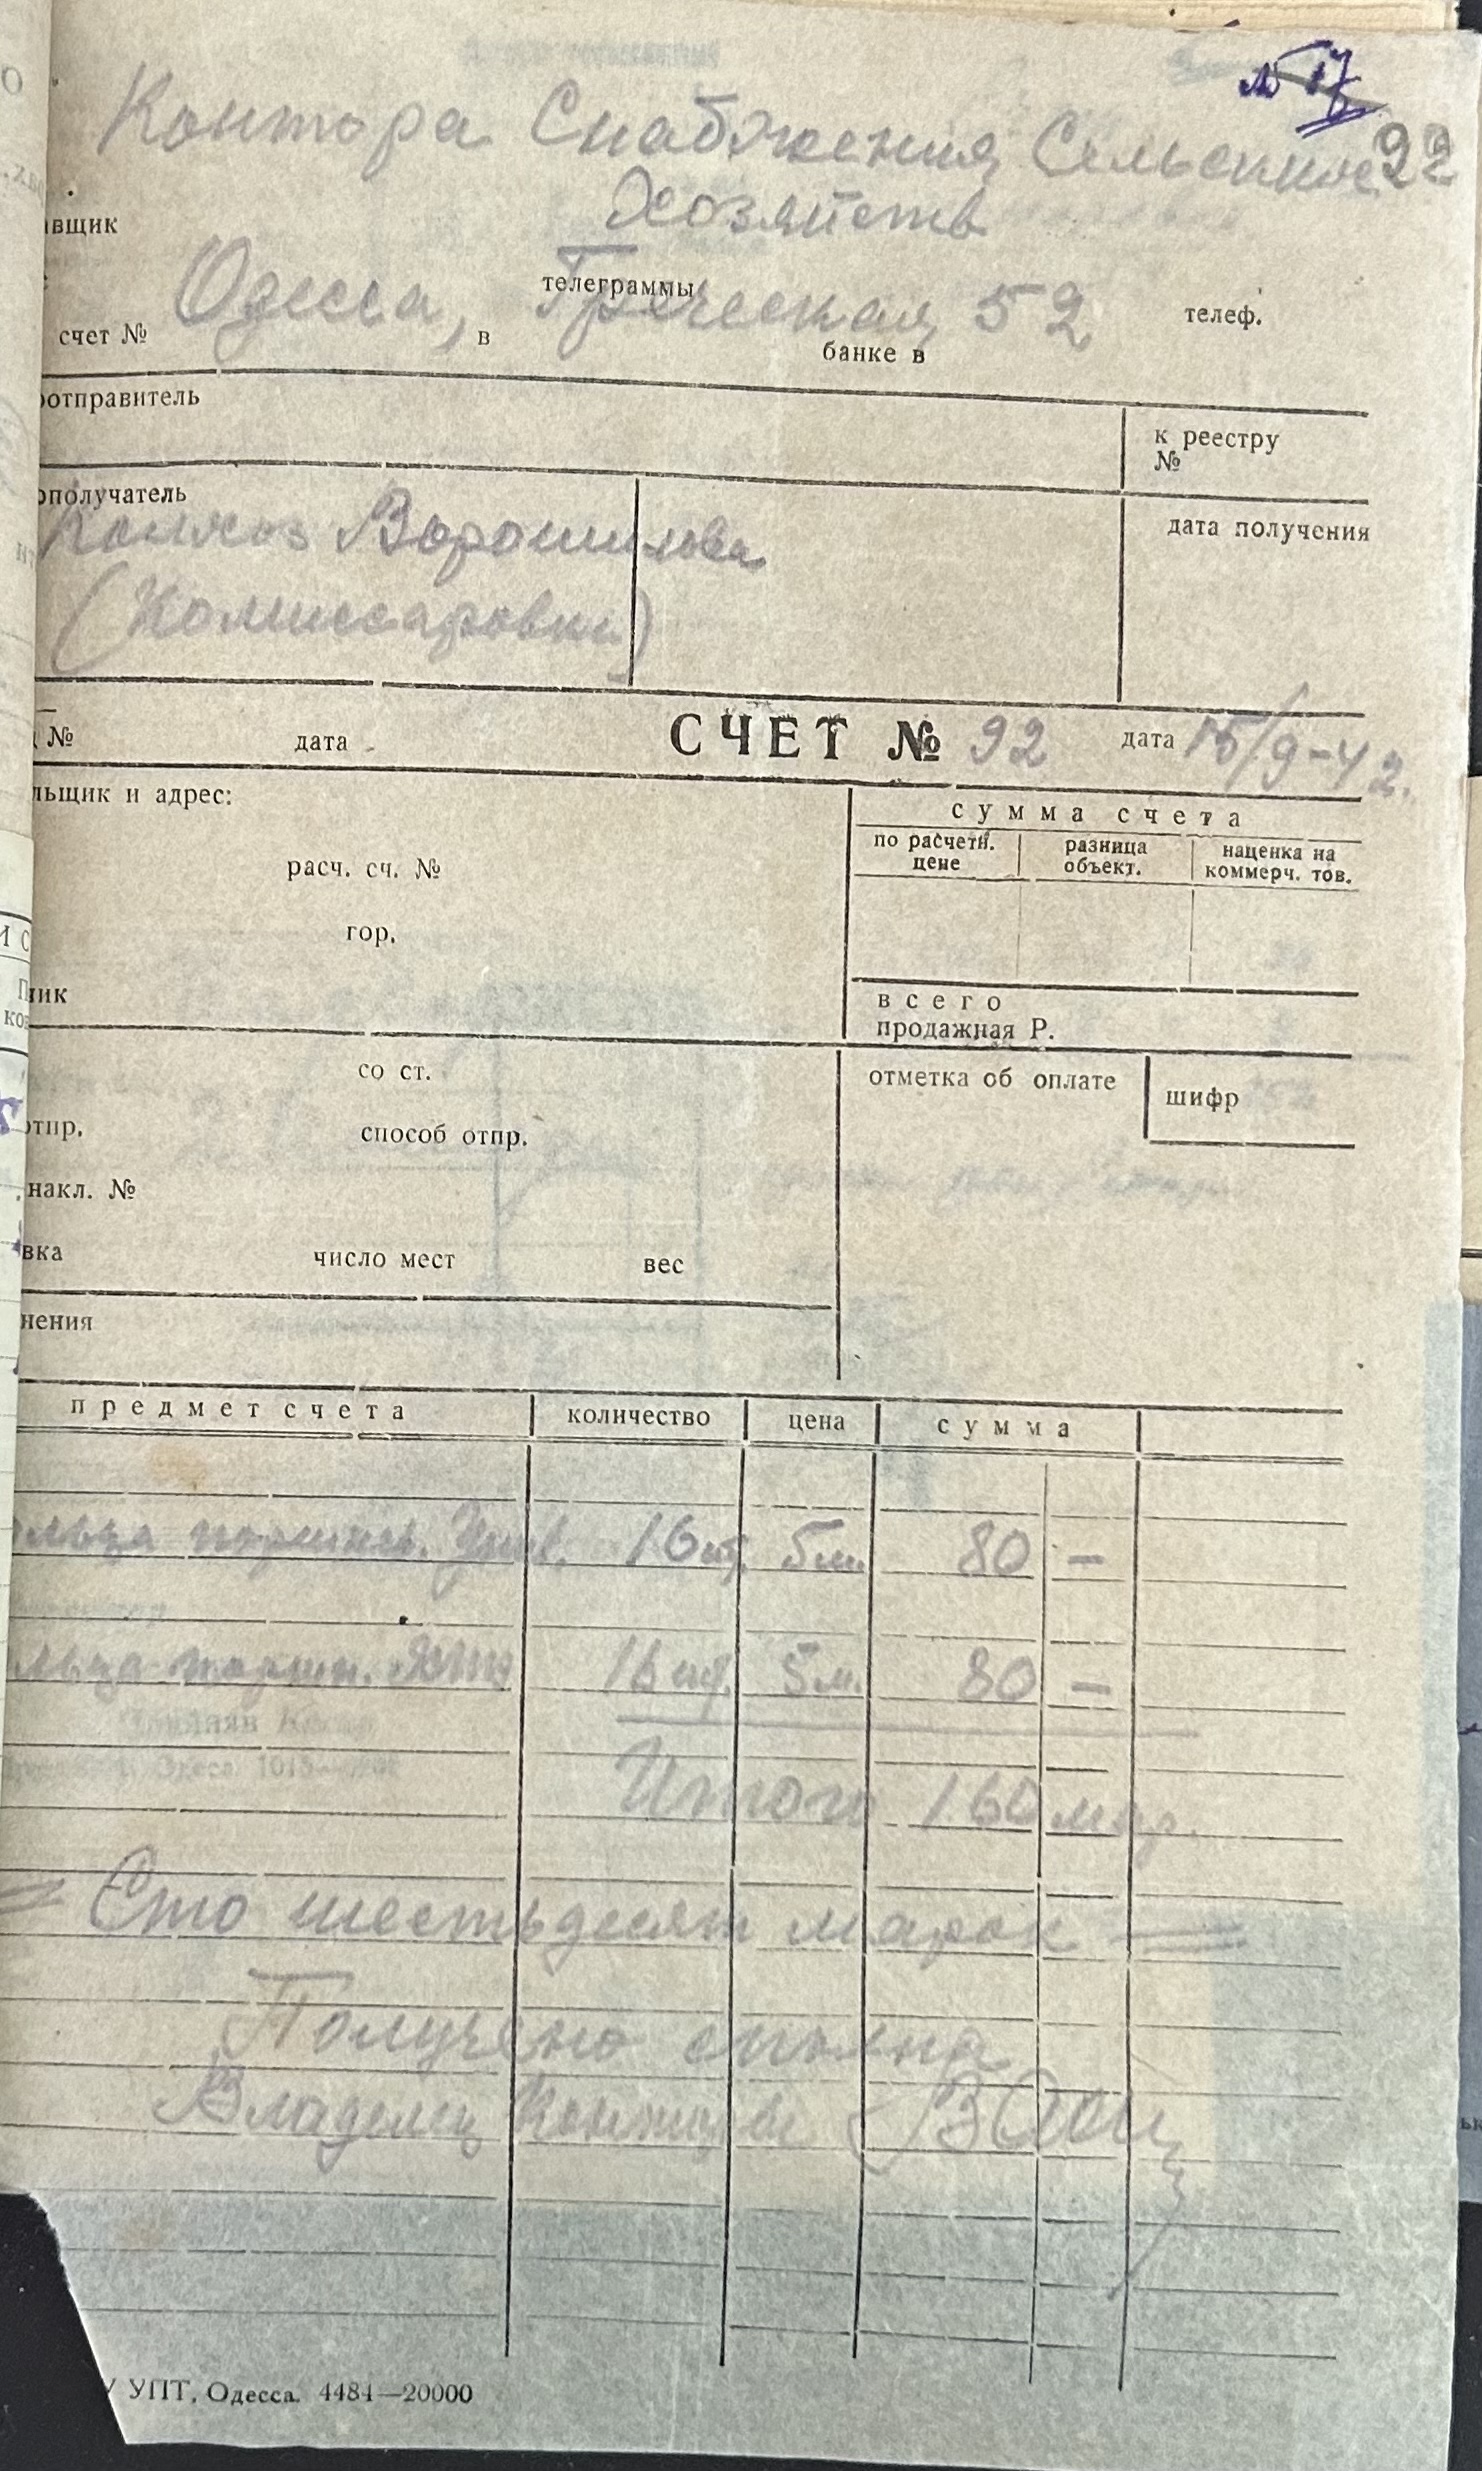 № 17
92
Контора Снабжения Сельских
Хозяйств
авщик
Одесса, Греческая, 52
телеграммы
телеф.
счет №
в
банке в
оотправитель
к реестру
№
ополучатель
дата получения
Колхоз Ворошилова
(Комиссаровка)
№
дата
СЧЕТ № 92
дата 15/9-42.
льщик и адрес:
сумма счета
по расчетн.
цене
разница
объект.
наценка на
коммерч. тов.
расч. сч. №
гор.
ник
всего
продажная Р.
со ст.
отметка об оплате
шифр
отпр.
способ отпр.
накл. №
вка
число мест
вес
нения
предмет счета
количество
цена
сумма
ольца поршнев. 16 шт. 5 м. 80 —
льца поршн. 16 шт. 5 м. 80 —
Итого 160 мар.
= Сто шестьдесят марок =
Получено сполна
Владелец Конторы
УПТ, Одесса. 4484—20000